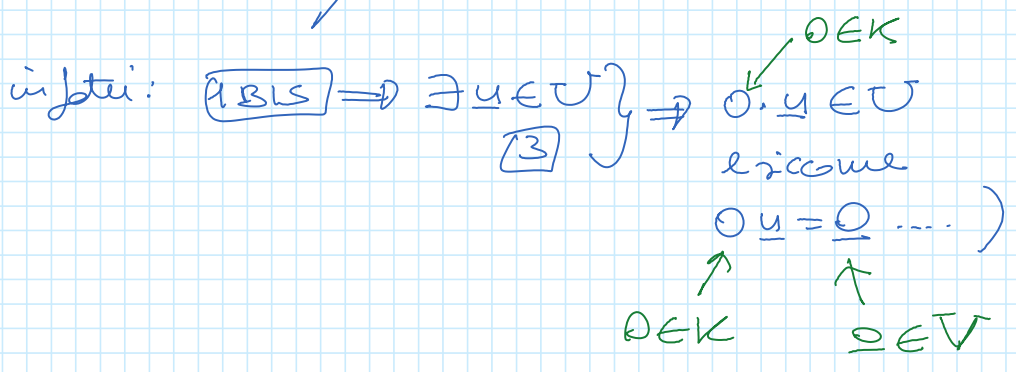 0 ∈ K
infatti: 1 BIS ⟹ ∃ u ∈ U } ⟹ 0 · u ∈ U
3
e siccome
0 u = 0 .... )
0 ∈ K
0 ∈ V